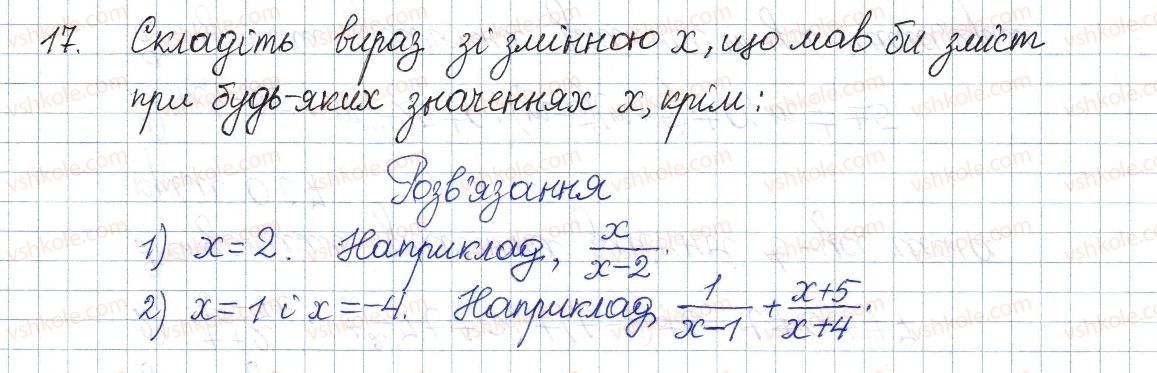 17. Складіть вираз зі змінною x, що мав би зміст
при будь-яких значеннях x, крім:
Розв'язання
1) x=2. Наприклад, x/(x-2).
2) x=1 і x=-4. Наприклад, 1/(x-1) + (x+5)/(x+4).
vshkole.com